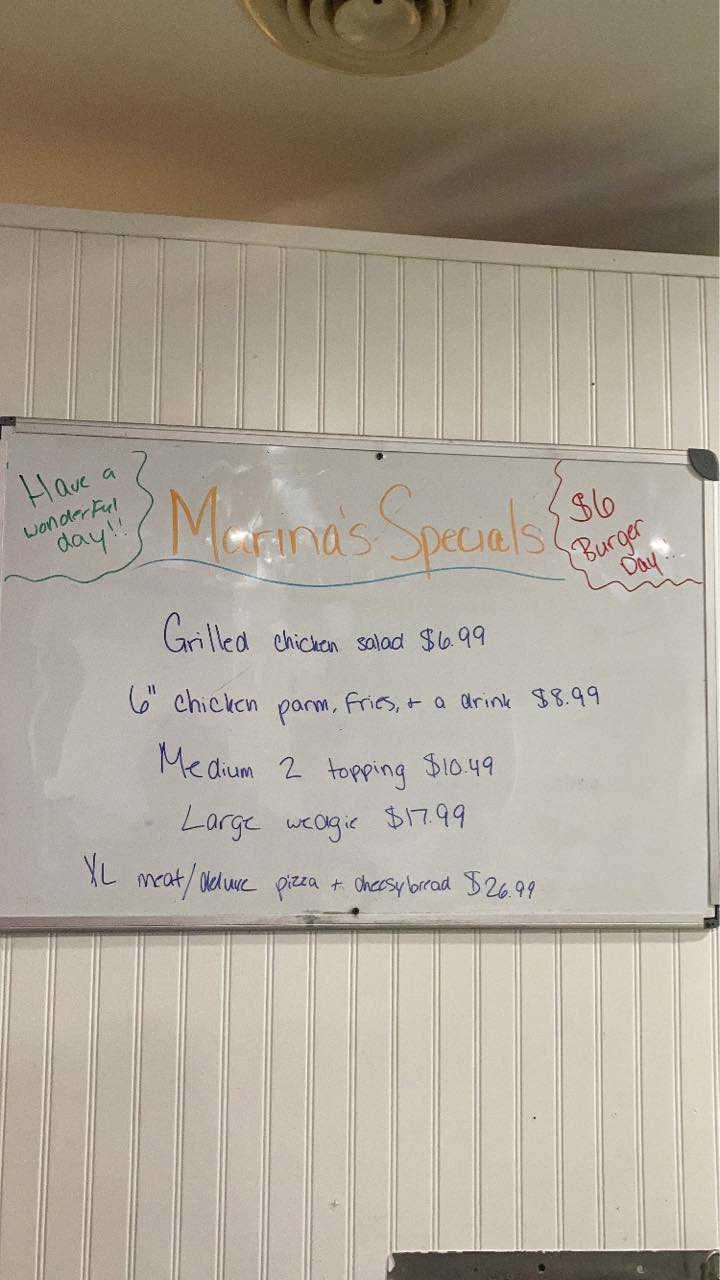 Have a
wonderful
day!!
Marina's Specials
$6
Burger
Day!
Grilled chicken salad $6.99
6" chicken parm, fries, + a drink $8.99
Medium 2 topping $10.49
Large wedgie $17.99
XL meat/deluxe pizza + cheesybread $26.99